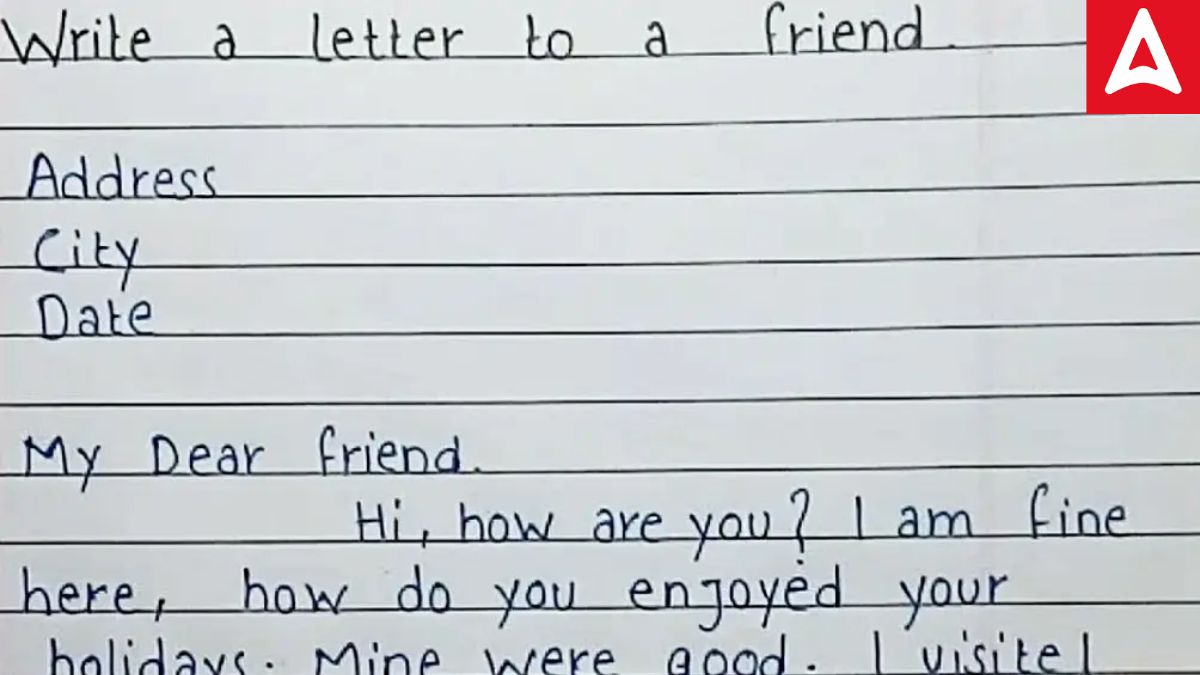 Write a letter to a friend.
Address
City
Date
My Dear friend.
Hi, how are you? I am fine
here, how do you enjoyed your
holidays. Mine were good. I visited